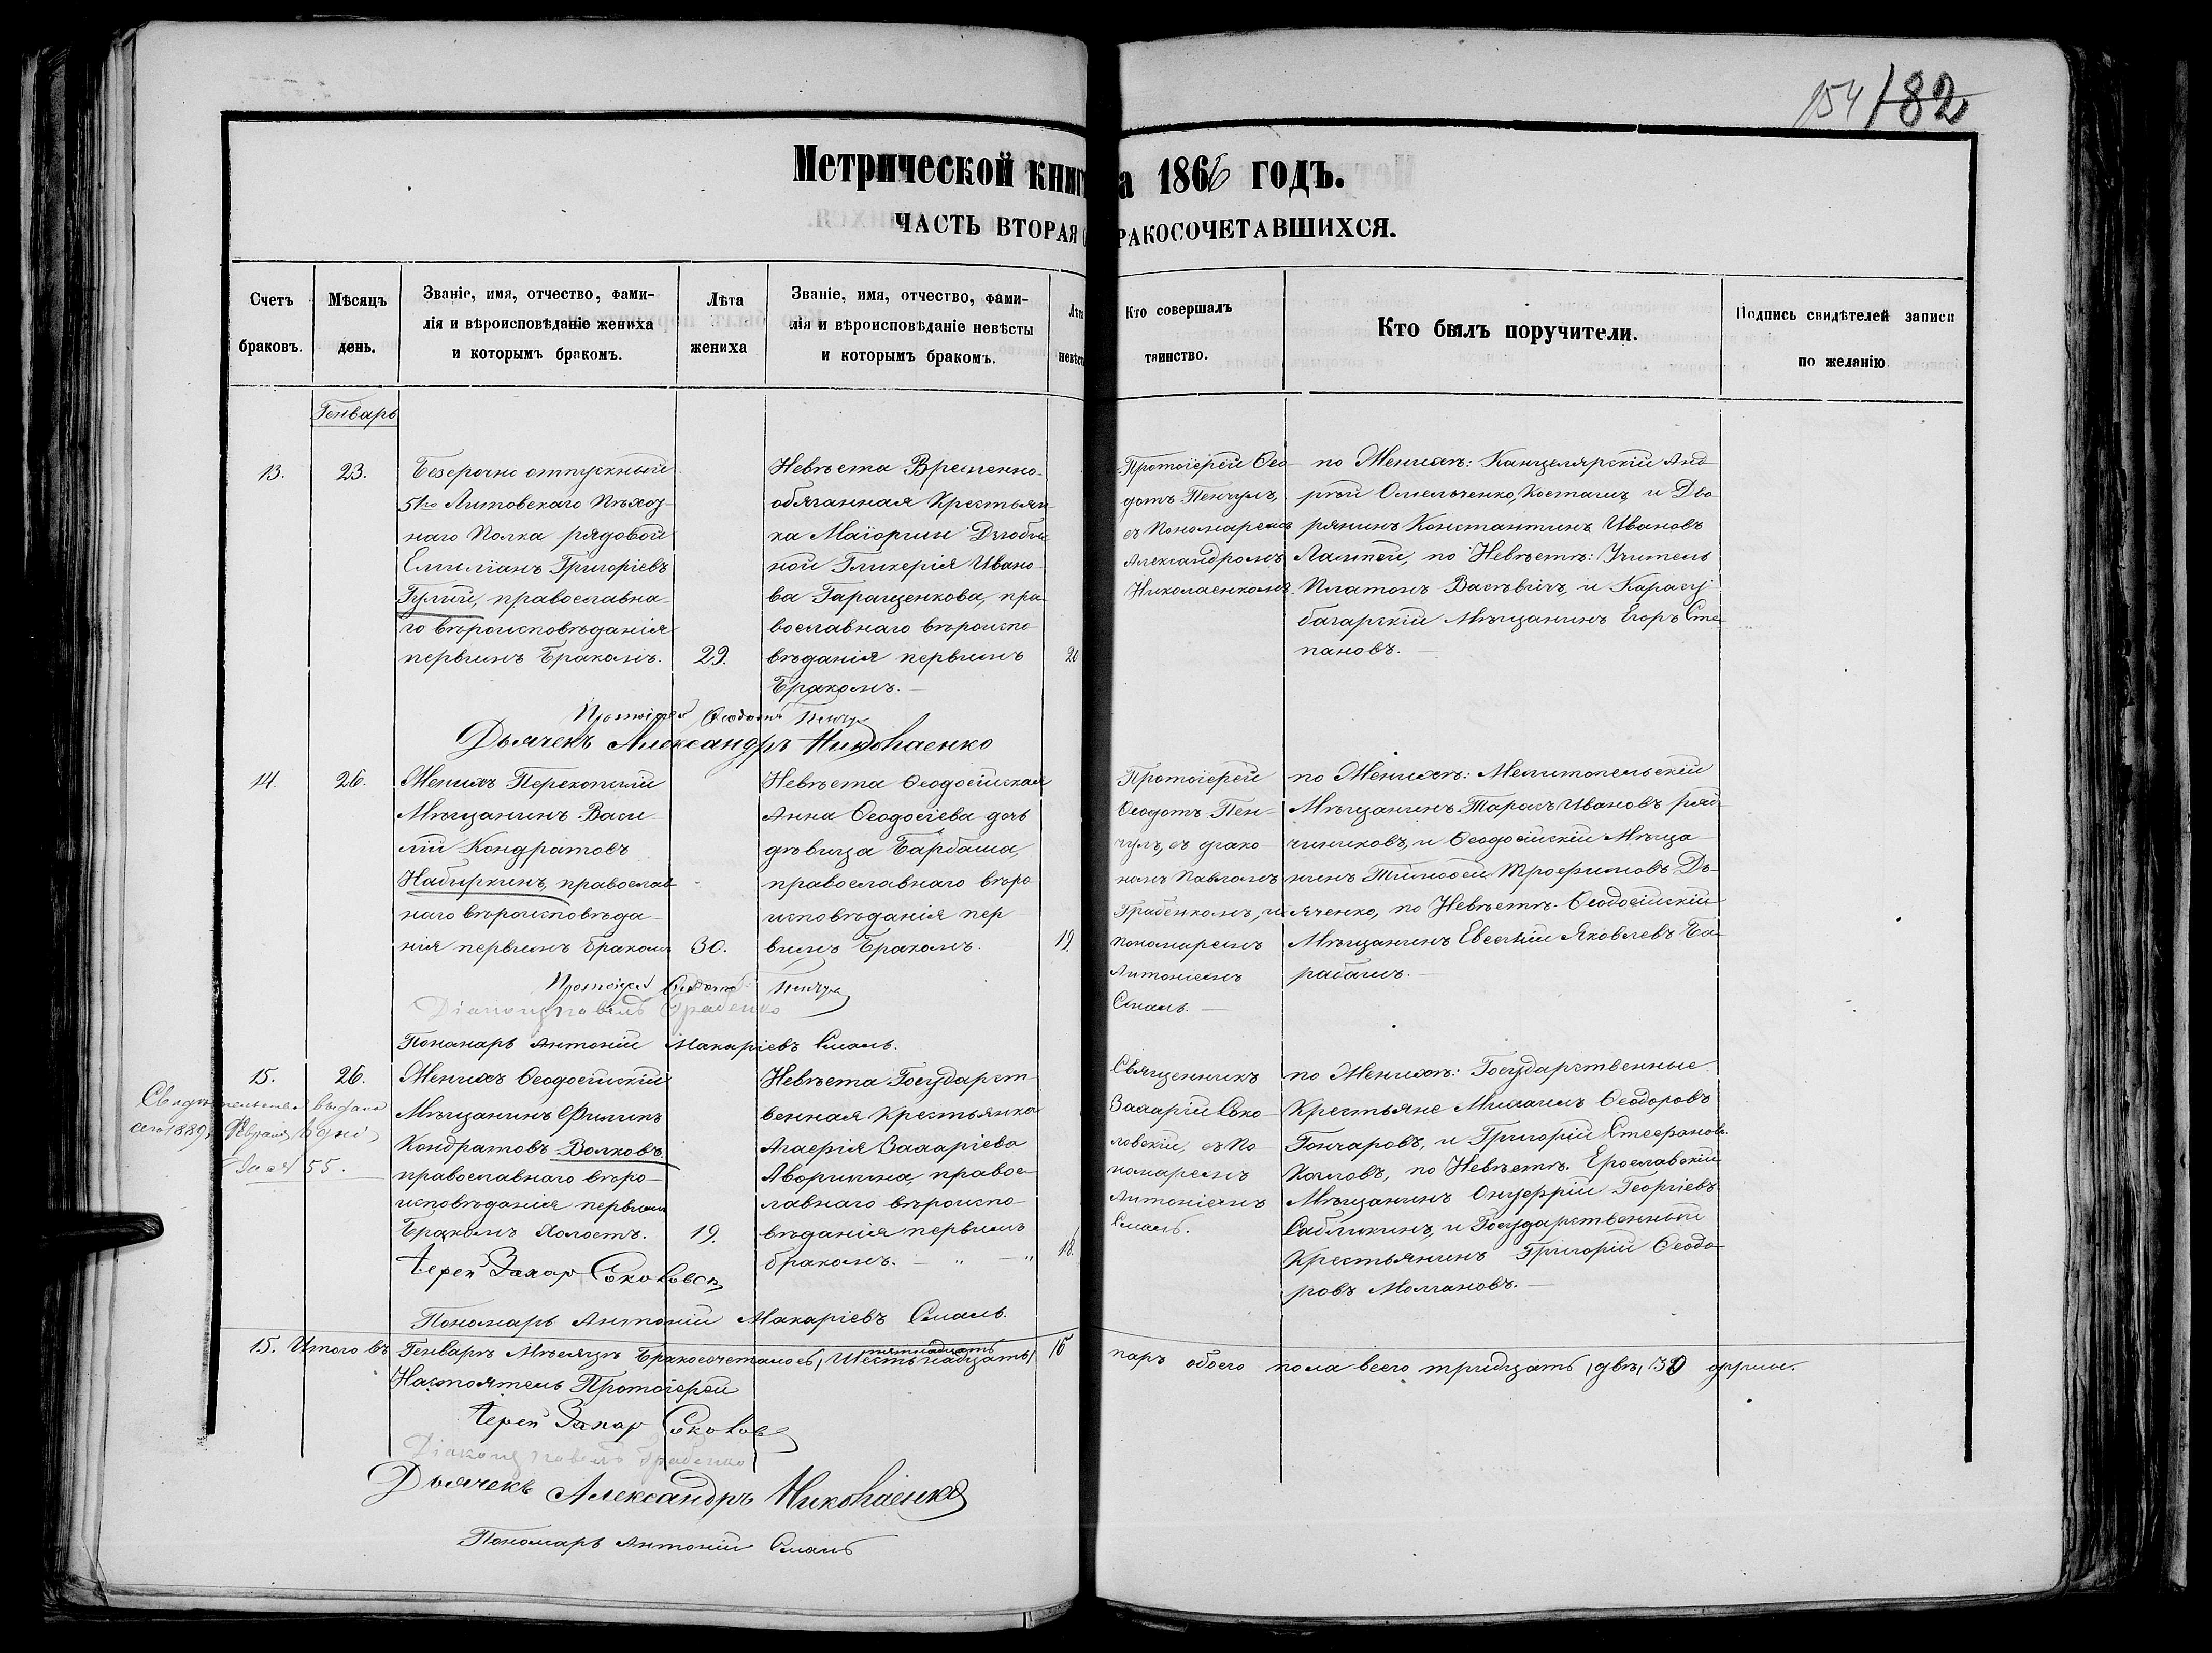 154 / 182
Метрической книг а 1866 годъ.
ЧАСТЬ ВТОРАЯ РАКОСОЧЕТАВШИХСЯ.
Счетъ браковъ.
Мѣсяцъ день.
Званіе, имя, отчество, фами-
лія и вѣроисповѣданіе жениха
и которымъ бракомъ.
Лѣта
жениха
Званіе, имя, отчество, фами-
лія и вѣроисповѣданіе невѣсты
и которымъ бракомъ.
Лѣта
невѣст
Кто совершалъ
таинство.
Кто былъ поручители.
Подпись свидѣтелей записи
по желанію
Генварь
13.
23.
Безсрочно отпускный
51го Литовскаго Пѣхот-
наго Полка рядовой
Емиліанъ Григоріевъ
Гулий, православна-
го вѣроисповѣданія
первымъ Бракомъ.
29.
Невѣста Временно-
обязанная Крестьян-
ка Маіорши Дзюби-
ной Гликерія Ивано-
ва Гаращенкова, пра-
вославнаго вѣроиспо-
вѣданія первымъ
Бракомъ. —
20
Протоіерей Ѳео-
дотъ Пенчулъ,
съ Пономаремъ
Александромъ
Николаенкомъ.
по Женихѣ: Канцелярскій Анд-
рѣй Омельченко, Косташъ и Дво-
рянинъ Константинъ Ивановъ
Лампси, по Невѣстѣ: Учитель
Платонъ Васѣвичъ, и Карасу-
базарскій Мѣщанинъ Егоръ Сте-
пановъ. —
Протоіерей Ѳеодотъ Пенчулъ
Дьячекъ Александръ Николаенко
14.
26.
Женихъ Перекопскій
Мѣщанинъ Васи-
лій Кондратовъ
Набиркинъ, православ-
наго вѣроисповѣда-
нія первымъ Бракомъ
30.
Невѣста Ѳеодосійская
Анна Ѳеодосіева дочь
дѣвица Барбаша,
православнаго вѣро-
исповѣданія пер-
вымъ Бракомъ.
19.
Протоіерей
Ѳеодотъ Пен-
чулъ, съ діако-
номъ Павломъ
Грабенкомъ, и
пономаремъ
Антоніемъ
Смаль. —
по Женихѣ: Мелитопольскій
Мѣщанинъ Тарасъ Ивановъ Ряб-
чинковъ, и Ѳеодосійскій Мѣща-
нинъ Тимоѳей Трофимовъ Дь-
яченко, по Невѣстѣ. Ѳеодосійскій
Мѣщанинъ Евсевій Яковлевъ Ба-
рабашъ. —
Протоіерей Ѳеодотъ Пенчулъ
Діаконъ Павелъ Грабенко
Пономарь Антоній Макаріевъ Смаль.
15.
26.
Свидѣтельство выдано
сего 1889 Февраля дня
за № 55.
Женихъ Ѳеодосійскій
Мѣщанинъ Филипъ
Кондратовъ Волковъ
православнаго вѣро-
исповѣданія первымъ
Бракомъ Холостъ.
19.
Невѣста Государст-
венная Крестьянка
Агафія Захаріева
Аворшина, правос-
лавнаго вѣроиспо-
вѣданія первымъ
бракомъ. — „ — „
18.
Священникъ
Захарій Соко-
ловскій, съ По-
номаремъ
Антоніемъ
Смаль.
по Женихѣ: Государственные
Крестьяне Михаилъ Ѳеодоровъ
Гончаровъ, и Григорій Стефановъ
Козловъ, по Невѣстѣ. Ерославскій
Мѣщанинъ Онуфрій Георгіевъ
Сабликинъ, и Государственный
Крестьянинъ Григорій Ѳеодо-
ровъ Молчановъ. —
Іерей Захар Соколовск
Пономарь Антоній Макаріевъ Смаль.
15. Итого въ Генварѣ Мѣсяцѣ Бракосочеталось, Шестьнадцать, 15 паръ обоего пола всего тридцать, двѣ, 30 душъ.
пятнадцать
Настоятель Протоіерей
Іерей Захар Соколов
Діаконъ Павелъ Грабенко
Дьячекъ Александръ Николаенко
Пономарь Антоній Смаль